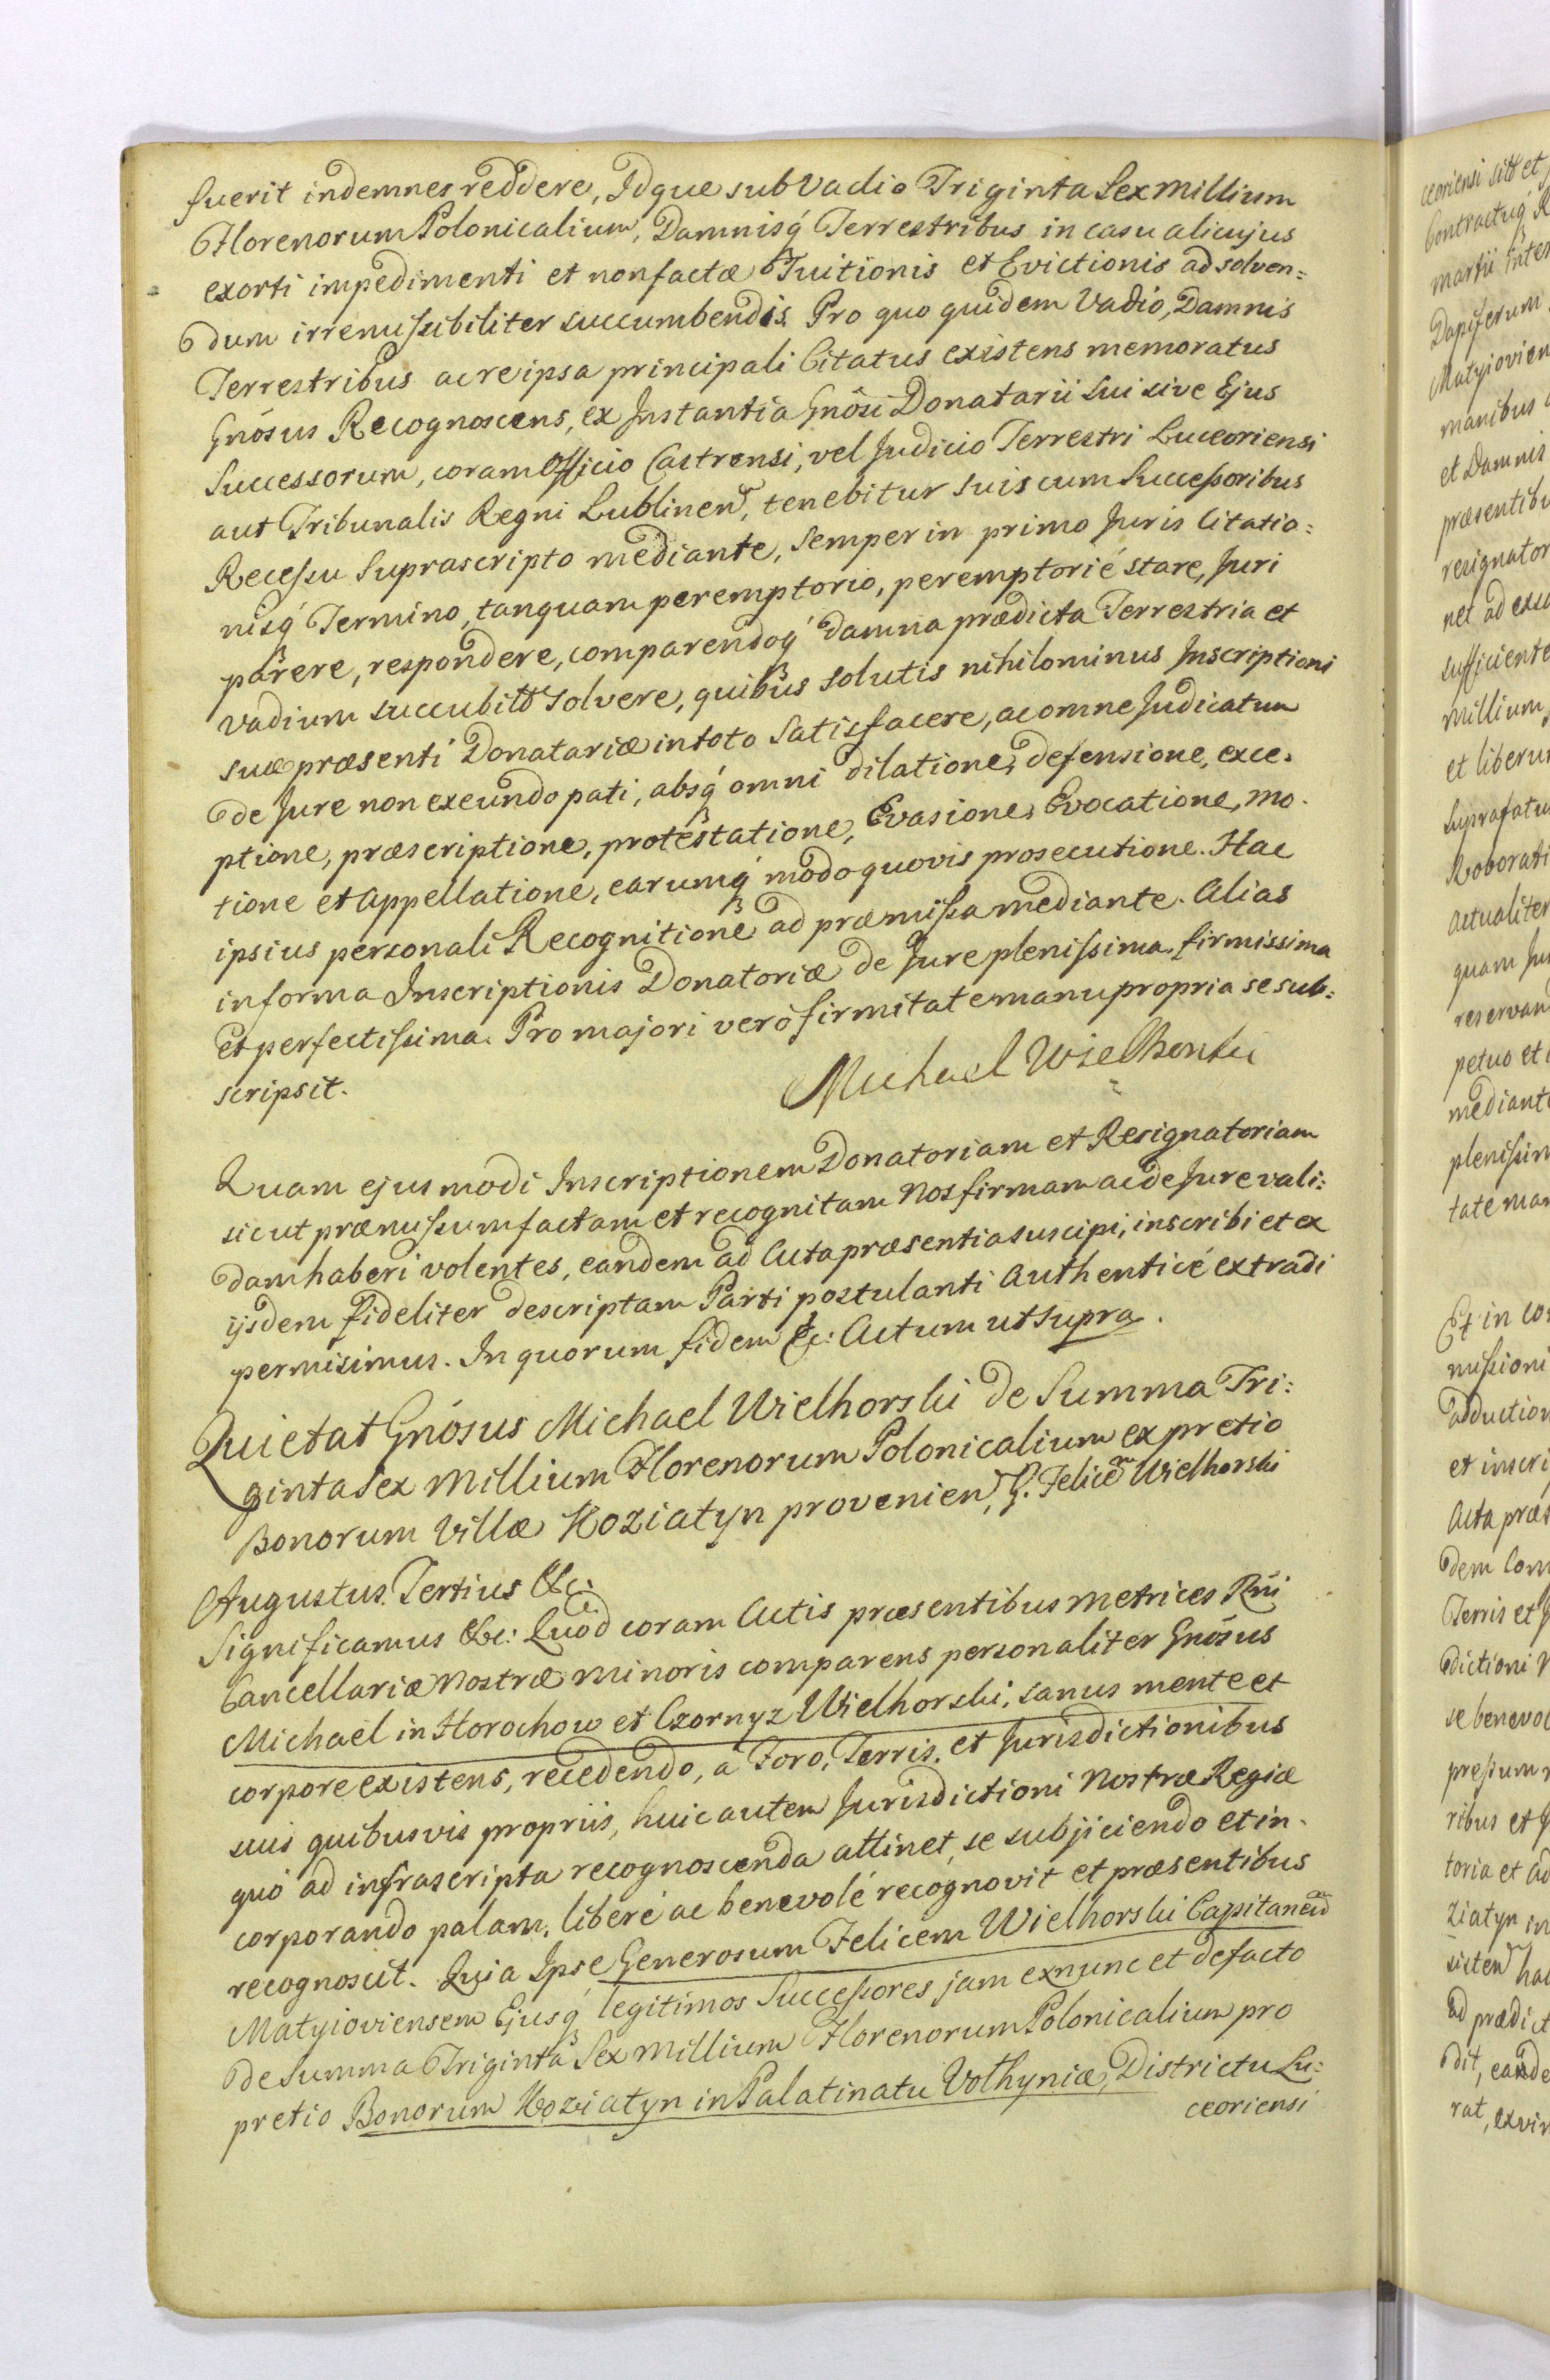 fuerit indemnes reddere, Idque sub Vadio Triginta Sex Millium
Florenorum Polonicalium, Damnisq́ Terrestribus in casu alicujus
exorti impedimenti et non factæ Tuitionis et Evictionis ad solven=
dum irremissibiliter succumbendis. Pro quo quidem Vadio, Damnis
Terrestribus ac re ipsa principali Citatus existens memoratus
Gnōsus Recognoscens, ex Instantia Gnōsi Donatarii sui sive Ejus
Successorum, coram Officio Castrensi, vel Judicio Terrestri Luceoriensi
aut Tribunalis Regni Lublinen, tenebitur suis cum Successoribus
Recessu Suprascripto mediante, semper in primo Juris Citatio=
nisq́ Termino, tanquam peremptorio, peremptorié stare, Juri
parere, respondere, comparendoq́ damna prædicta Terrestria et
vadium succubitt Solvere, quibus solutis nihilominus Inscriptioni
suæ præsenti Donatariæ in toto satisfacere, ac omne Judicatum
de Jure non exeundo pati, absq́ omni dilatione, defensione, exce=
ptione, præscriptione, protestatione, Evasione, Evocatione, mo=
tione et Appellatione, earumq́ modo quovis prosecutione. Hac
ipsius personali Recognitione ad præmissa mediante. Alias
in forma Inscriptionis Donatoriæ de Jure plenissima, firmissima
et perfectissima. Pro majori veró firmitate manu propria se sub=
scripsit.
Michael Wielhorski
Quam ejusmodi Inscriptionem Donatoriam et Resignatoriam
sicut præmissum factam et recognitam Nos firmam ac de Jure vali=
dam haberi volentes, eandem ad Acta præsentia suscipi, inscribi et ex
ijsdem fideliter descriptam Parti postulanti Authenticé extradi
permisimus. In quorum fidem &c: Actum ut supra.
Quietat Gnōsus Michael Wielhorski de Summa Tri=
ginta Sex Millium Florenorum Polonicalium ex pretio
Bonorum Villæ Koziatyn provenien, G. Felicem Wielhorski
Augustus Tertius &c:
Significamus &c: Quod coram Actis præsentibus Metrices Rñi
Cancellariæ Nostræ Minoris comparens personaliter Gnōsus
Michael in Horochow et Czornyz Wielhorski, sanus mente et
corpore existens, recedendo, à Foro, Terris, et Jurisdictionibus
suis quibusvis propriis, huic autem Jurisdictioni Nostræ Regiæ
quó ad infrascripta recognoscenda attinet, se subjiciendo et in=
corporando palam, liberé ac benevolé recognovit et præsentibus
recognoscit. Quia Ipse Generosum Felicem Wielhorski Capitaneum
Matyioviensem Ejusq́ legitimos Successores jam exnunc et defacto
de Summa Triginta Sex Millium Florenorum Polonicalium pro
pretio Bonorum Koziatyn in Palatinatu Volhyniæ, Districtu Lu=
ceoriensi
ceoriensi sitt et
Contractuq́ R
martii inter
Dapiferum
Matyiovien
manibus
et Damnis
præsentibu
resignator
net ad exso
sufficiente
millium
et liberu
Suprafatu
Roborati
actualiter
quam Ju
reservan
petuo et
mediante
plenissim
tate man
Et in co
missioni
adduction
et inscri
Acta præs
dem Com
Terris et J
dictioni N
se benevo
pressum
ribus et
toria et ad
ziatyn in
sisten ha
ad prædict
dit, eande
rat, ex vir